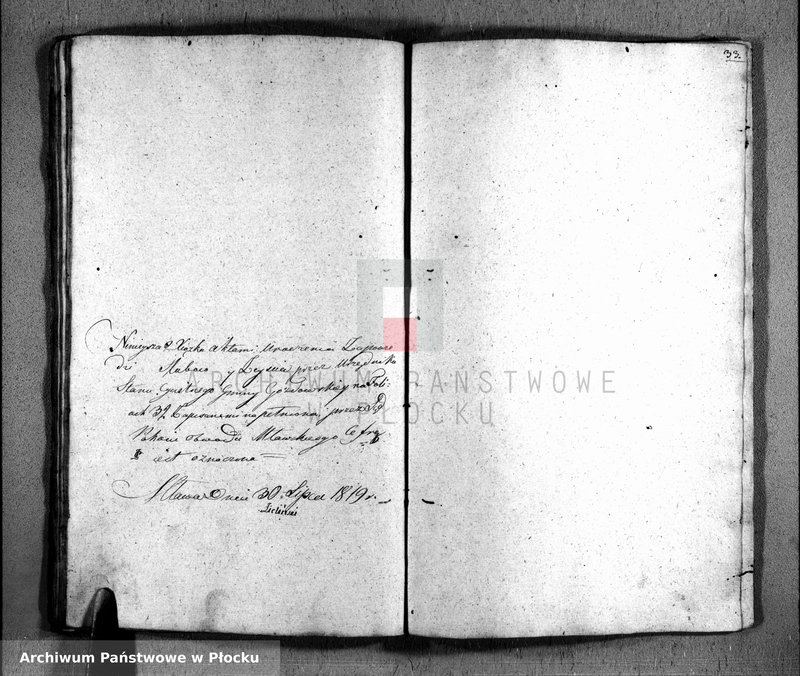 33.
Ninieysza Xiążka Aktami Urodzenia Zapowie
dzi Małżeń y Zeyścia przez Urzędnika
Stanu Cywilnego Gminy na Foli
ach 32 Zapisanemi napełniona, przez
Powiatu Mławskiego
iest oznaczona =
Mława Dnia 30. Lipca 1819 r.
ARCHIWUM PAŃSTWOWE
W PŁOCKU
Archiwum Państwowe w Płocku